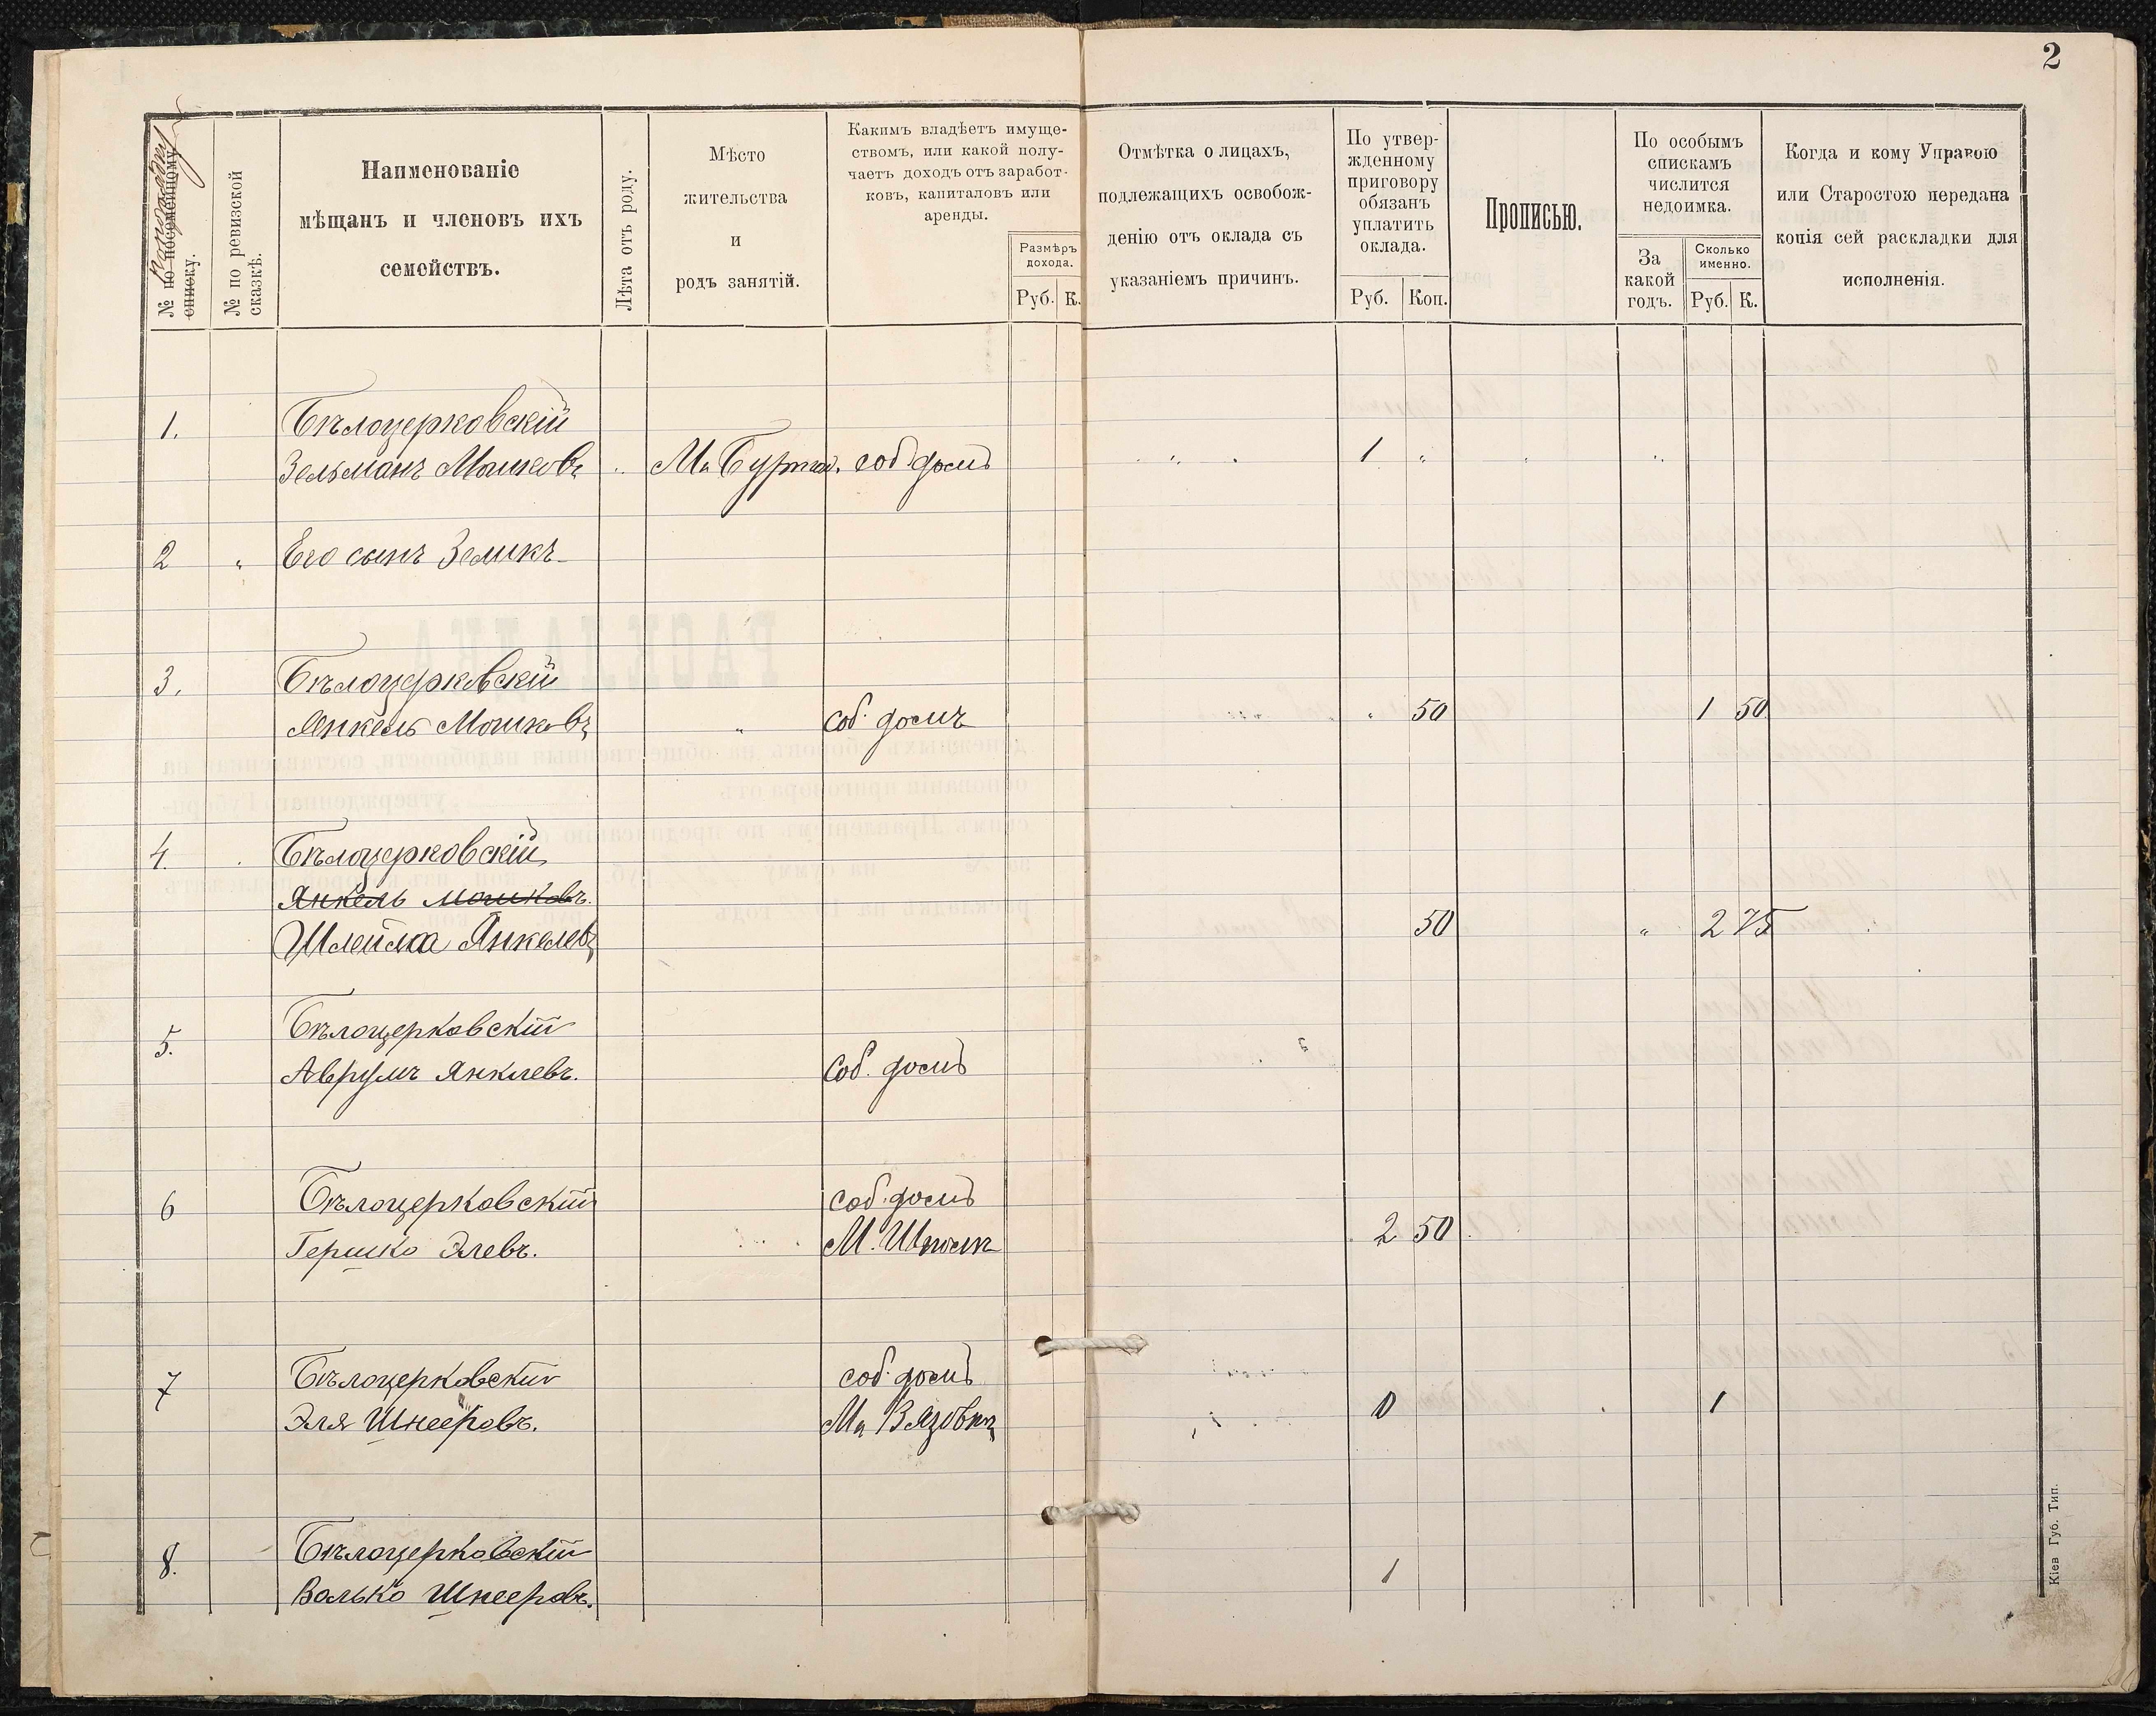 2
по порядку
№ по посеменному списку.
№ по ревизской сказкѣ.
Наименованіе
мѣщанъ и членовъ ихъ
семействъ.
Лѣта отъ роду.
Мѣсто
жительства
и
родъ занятій.
Какимъ владѣетъ имуще-
ствомъ, или какой полу-
чаетъ доходъ отъ заработ-
ковъ, капиталовъ или
аренды.
Размѣръ
дохода.
Руб. К.
Отмѣтка о лицахъ,
подлежащихъ освобож-
денію отъ оклада съ
указаніемъ причинъ.
По утвер-
жденному
приговору
обязанъ
уплатить
оклада.
Руб. Коп.
Прописью.
По особымъ
спискамъ
числится
недоимка.
За
какой
годъ.
Сколько
именно.
Руб. К.
Когда и кому Управою
или Старостою передана
копія сей раскладки для
исполненія.
1. Бѣлоцерковскій
Зельманъ Мошковъ " соб. домъ " 1 " " "
2 " Его сынъ Зеликъ
3. Бѣлоцерковскій
Янкель Мошковъ " соб. домъ " 50 1 50
4. Бѣлоцерковскій
Янкель Мошковъ.
Шлейма Янкелевъ 50 " 2 75
5. Бѣлоцерковскій
Аврумъ Янклевъ. Соб. домъ
6 Бѣлоцерковскій соб. домъ
Гершко Элевъ. М. Шпола 2 50
7 Бѣлоцерковскій соб. домъ
Эля Шнееровъ. 1
8. Бѣлоцерковскій
Волько Шнееровъ. 1
Кіев Губ. Тип.